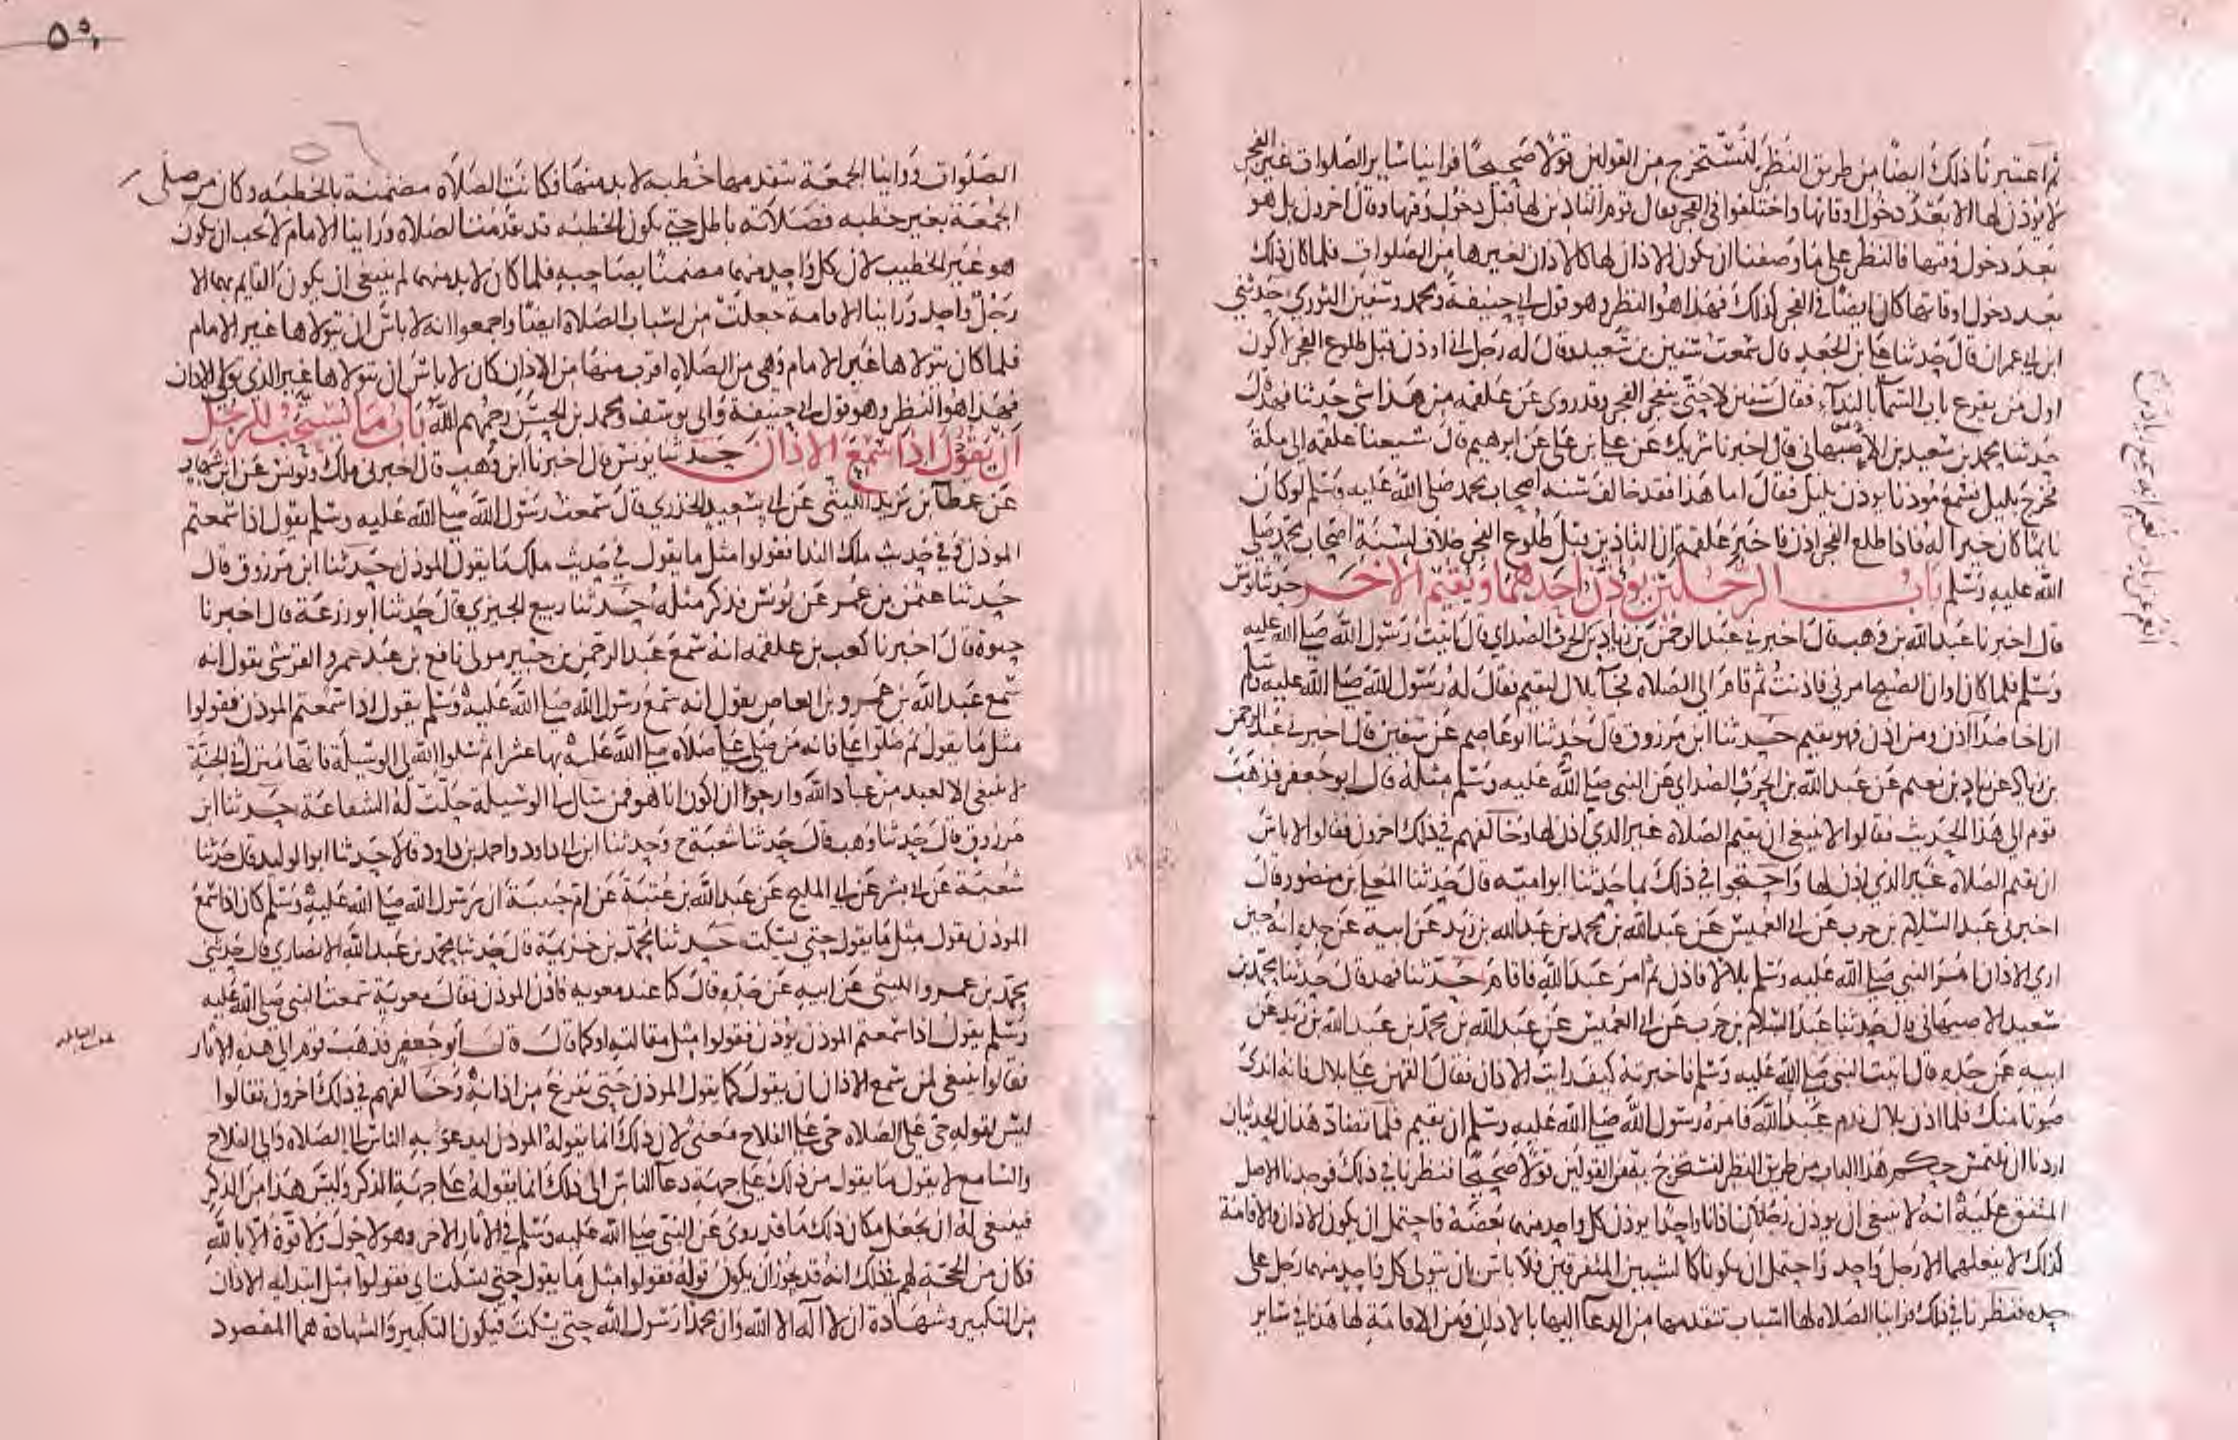 ثم اعتبرنا ذلك ايضا من طريق النظر لنستخرج من القولين قولا صحيحا فراينا سائر الصلوات غير الفجر
لا يوذن لها الا بعد دخول اوقاتها واختلفوا في الفجر فقال قوم التاذين لها قبل دخول وقتها وقال اخرون بل هو
بعد دخول وقتها فالنظر على ما وصفنا ان يكون الاذان لها كالاذان لغيرها من الصلوات فلما كان ذلك
بعد دخول اوقاتها كان ايضا في الفجر كذلك فهذا هو النظر وهو قول ابي حنيفة ومحمد وسفين الثوري حدثني
ابن ابي عمران قال حدثنا علي بن الجعد قال سمعت سفين بن سعيد وقال له رجل اني اوذن قبل طلوع الفجر لاكون
اول من يقرع باب السما بالنداء فقال سفين لا حتى ينفجر الفجر وقد روي عن علقمه من هذا شي حدثنا فهد قال
حدثنا محمد بن سعيد بن الاصبهاني قال اخبرنا شريك عن علي بن علي عن ابرهيم قال شيعنا علقمه الى مكة
فخرج بليل فسمع موذنا يوذن بليل فقال اما هذا فقد خالف سنه اصحاب محمد صلى الله عليه وسلم لو كان
نايما كان خيرا له فاذا طلع الفجر اذن فاخبر علقمة ان التاذين قبل طلوع الفجر خلاف لسنة اصحاب محمد صلى
الله عليه وسلم باب الرجلين يوذن احدهما ويقيم الاخر حدثنا يونس
قال اخبرنا عبد الله بن وهب قال اخبرني عبد الرحمن بن زياد بن الحرث الصداي قال اتيت رسول الله صلى الله عليه
وسلم فلما كان اوان الصبح امرني فاذنت ثم قام الى الصلاه فجا بلال ليقيم فقال له رسول الله صلى الله عليه وسلم
ان اخا صدا اذن ومن اذن فهو يقيم حدثنا ابن مرزوق قال حدثنا ابو عاصم عن سفين قال اخبرني عبد الرحمن
بن زياد عن زياد بن نعيم عن عبد الله بن الحرث الصداي عن النبي صلى الله عليه وسلم مثله قال ابو جعفر فذهب
قوم الى هذا الحديث فقالوا لا ينبغي ان يقيم الصلاه غير الذي اذن لها وخالفهم في ذلك اخرون فقالوا لا باس
ان يقيم الصلاه غير الذي اذن لها واحتجوا في ذلك بما حدثنا ابو اميه قال حدثنا المعلى بن منصور قال
اخبرني عبد السلام بن حرب عن ابي العميس عن عبد الله بن محمد بن عبد الله بن زيد عن ابيه عن جده انه حين
اري الاذان امر النبي صلى الله عليه وسلم بلالا فاذن ثم امر عبد الله فاقام حدثنا فهد قال حدثنا محمد بن
سعيد الاصبهاني قال حدثنا عبد السلام بن حرب عن ابي العميس عن عبد الله بن محمد بن عبد الله بن زيد عن
ابيه عن جده قال اتيت النبي صلى الله عليه وسلم فاخبرته كيف رايت الاذان فقال القهن على بلال فانه اندى
صوتا منك فلما اذن بلال ندم عبد الله فامره رسول الله صلى الله عليه وسلم ان يقيم فلما تضاد هذان الحديثان
اردنا ان نلتمس حكم هذا الباب من طريق النظر لنستخرج به من القولين قولا صحيحا فنظرنا في ذلك فوجدنا الاصل
المتفق عليه انه لا ينبغي ان يوذن رجلان اذانا واحدا يوذن كل واحد منهما بعضه فاحتمل ان يكون الاذان والاقامة
كذلك لا يفعلهما الا رجل واحد واحتمل ان يكونا كالشيين المتفرقين فلا باس بان يتولى كل واحد منهما رجل على
حده فنظرنا في ذلك فراينا الصلاه لها اسباب تتقدمها من الدعا اليها بالاذان ومن الاقامة لها هذا في ساير
الصلوات وراينا الجمعة يتقدمها خطبه لا بد منها فكانت الصلاه مضمنة بالخطبه وكان من صلى
الجمعة بغير خطبه فصلاته باطل حتى يكون الخطبه قد تقدمت الصلاه وراينا الامام لا يجب ان يكون
هو غير الخطيب لان كل واحد منهما مضمنا بصاحبه فلما كان لا بد منهما لم ينبغي ان يكون القايم بهما الا
رجل واحد وراينا الاقامة جعلت من اسباب الصلاه ايضا واجمعوا انه لا باس ان يتولاها غير الامام
فلما كان يتولاها غير الامام وهي من الصلاه اقرب منها من الاذان كان لا باس ان يتولاها غير الذي تولى الاذان
فهذا هو النظر وهو قول ابي حنيفة وابي يوسف ومحمد بن الحسن رحمهم الله باب ما يستحب للرجل
ان يقول اذا سمع الاذان حدثنا يونس قال اخبرنا ابن وهب قال اخبرني ملك ويونس عن ابن شهاب
عن عطا بن يزيد الليثي عن ابي سعيد الخدري قال سمعت رسول الله صلى الله عليه وسلم يقول اذا سمعتم
الموذن وفي حديث ملك الندا فقولوا مثل ما يقول في حديث ملك ما يقول الموذن حدثنا ابن مرزوق قال
حدثنا عثمن بن عمر عن يونس فذكر مثله حدثنا ربيع الجيزي قال حدثنا ابو زرعة قال اخبرنا
حيوة قال اخبرنا كعب بن علقمه انه سمع عبد الرحمن بن جبير مولى نافع بن عبد عمرو القرشي يقول انه
سمع عبد الله بن عمرو بن العاص يقول انه سمع رسول الله صلى الله عليه وسلم يقول اذا سمعتم الموذن فقولوا
مثل ما يقول ثم صلوا علي فانه من صلى علي صلاه صلى الله عليه بها عشرا ثم سلوا الله لي الوسيلة فانها منزل في الجنة
لا ينبغي الا لعبد من عباد الله وارجوا ان اكون انا هو فمن سال لي الوسيلة حلت له الشفاعة حدثنا ابن
مرزوق قال حدثنا وهب قال حدثنا شعبة ح وحدثنا ابن ابي داود واحمد بن داود قالا حدثنا ابو الوليد قال حدثنا
شعبة عن ابي بشر عن ابي المليح عن عبد الله بن عتبة عن ام حبيبة ان رسول الله صلى الله عليه وسلم كان اذا سمع
الموذن يقول مثل ما يقول حتى يسكت حدثنا محمد بن خزيمة قال حدثنا محمد بن عبد الله الانصاري قال حدثني
محمد بن عمرو الليثي عن ابيه عن جده قال كنا عند معويه فاذن الموذن فقال معوية سمعت النبي صلى الله عليه
وسلم يقول اذا سمعتم الموذن يوذن فقولوا مثل مقالته او كما قال قال ابو جعفر فذهب قوم الى هذه الاثار
فقالوا ينبغي لمن سمع الاذان ان يقول كما يقول الموذن حتى يفرغ من اذانه وخالفهم في ذلك اخرون فقالوا
ليس لقوله حي على الصلاه حي على الفلاح معنى لان ذلك انما يقوله الموذن ليدعو به الناس الى الصلاه والى الفلاح
والسامع لا يقول ما يقول من ذلك على جهة دعا الناس الى ذلك انما يقوله على جهة الذكر وليس هذا من الذكر
فينبغي له ان يجعل مكان ذلك ما قد روي عن النبي صلى الله عليه وسلم في الاثار الاخر وهو لا حول ولا قوة الا بالله
فكان من الحجة لهم في ذلك انه قد يجوز ان يكون قوله فقولوا مثل ما يقول حتى يسكت اي فقولوا مثل ابتدايه الاذان
من التكبير وشهادة ان لا اله الا الله وان محمدا رسول الله حتى يسكت فيكون التكبير والشهادة هما المقصود